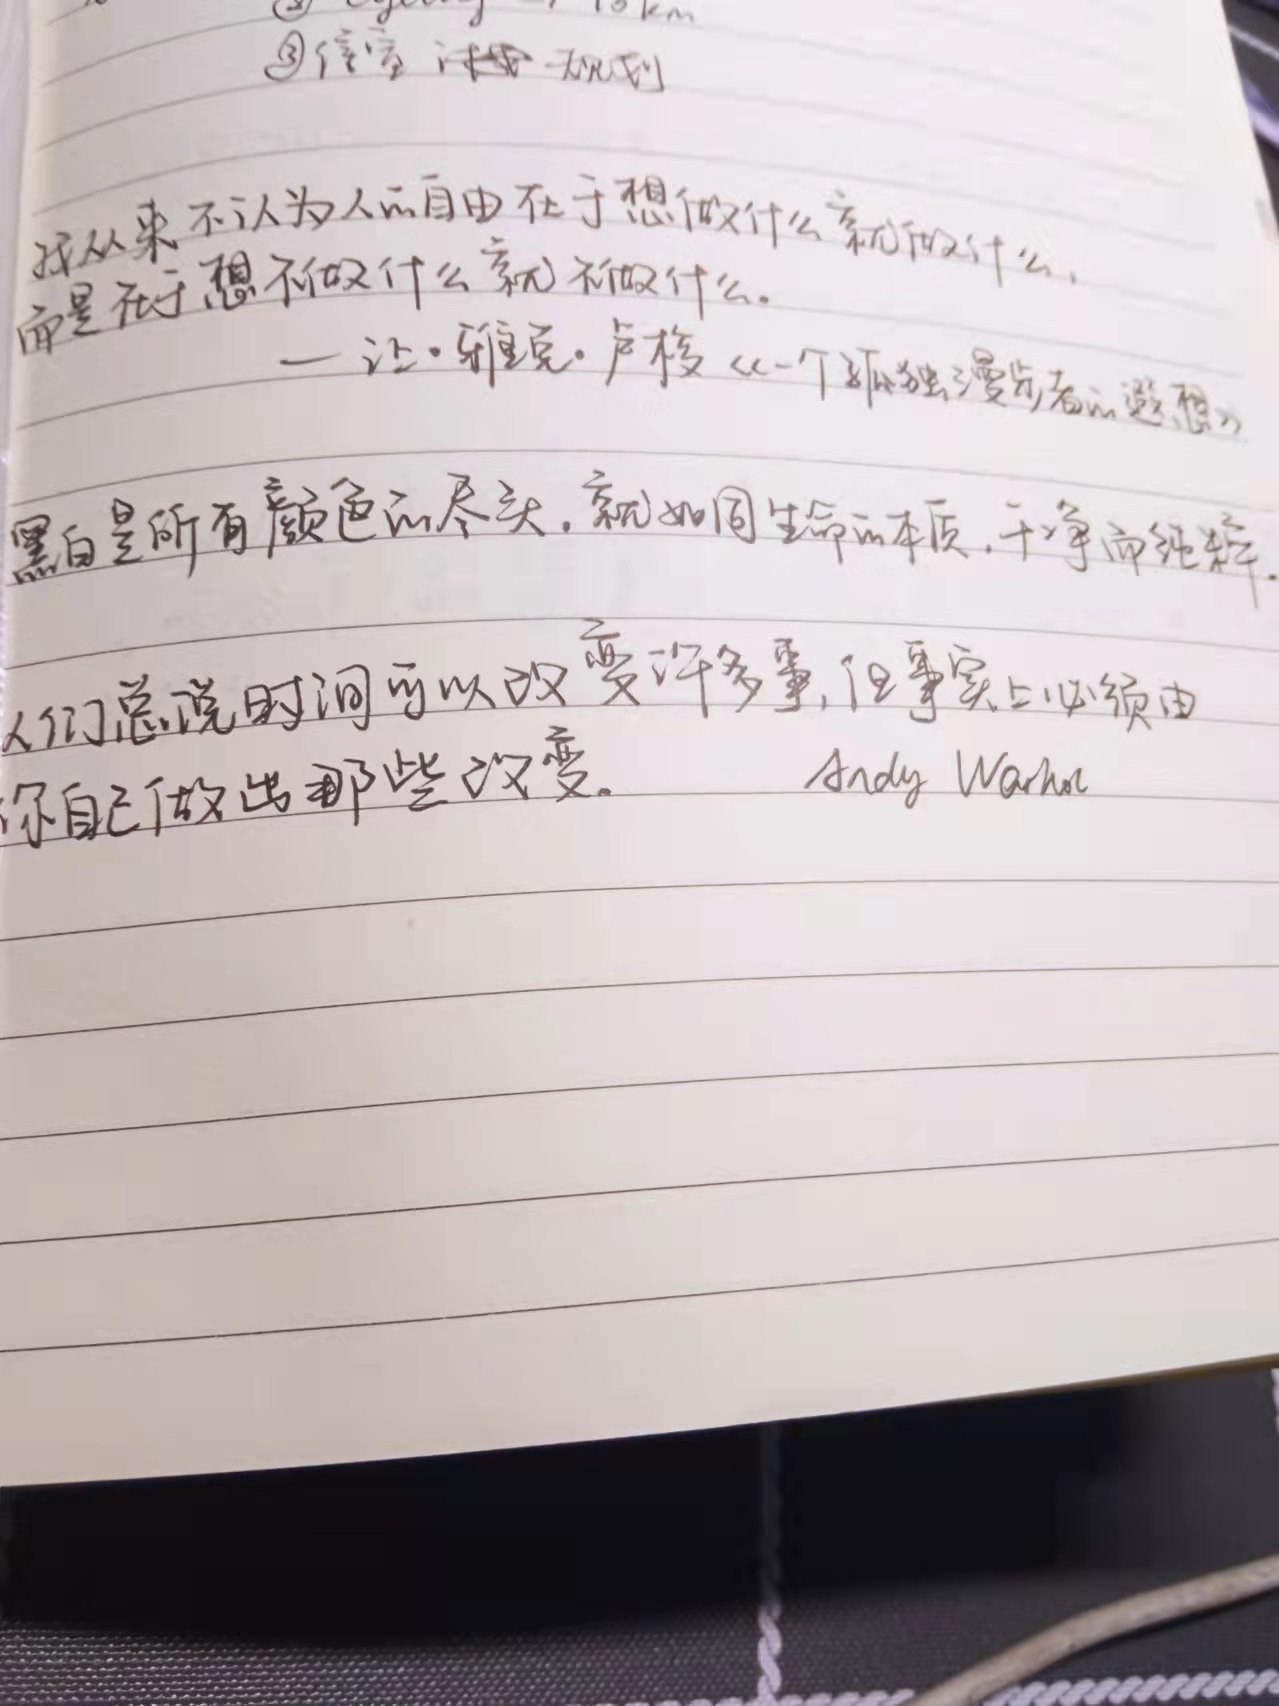 ② Cycling → 10 km
③ 信宜 计 规划
我从来不认为人的自由在于想做什么就做什么,
而是在于想不做什么就不做什么。
— 让·雅克·卢梭 《一个孤独漫步者的遐想》
黑白是所有颜色的尽头,就如同生命的本质,干净而纯粹.
人们总说时间可以改变许多事,但事实上必须由
你自己做出那些改变。 Andy Warhol